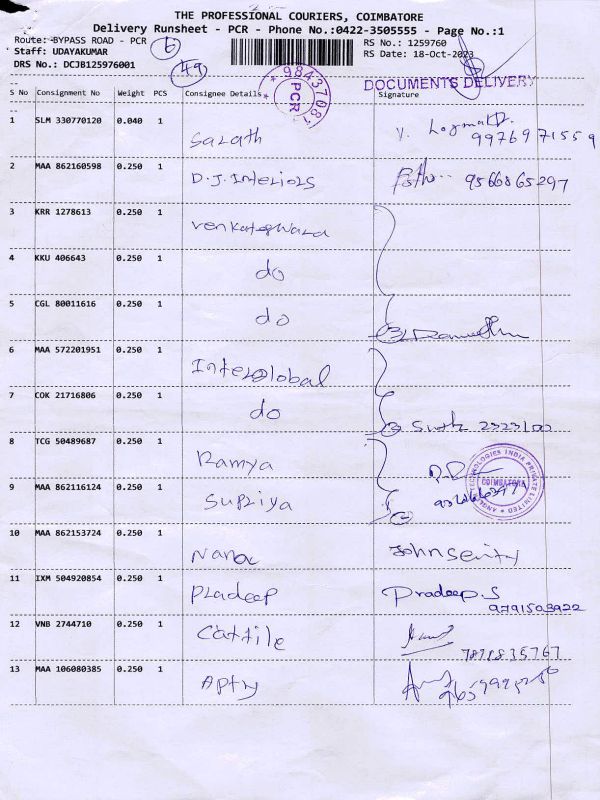 THE PROFESSIONAL COURIERS, COIMBATORE
Delivery Runsheet - PCR - Phone No.:0422-3505555 - Page No.:1
Route: BYPASS ROAD - PCR 6
RS No.: 1259760
Staff: UDAYAKUMAR
RS Date: 18-Oct-2023
DRS No.: DCJB125976001 49
PCR
DOCUMENTS DELIVERY
S No Consignment No Weight PCS Consignee Details Signature
1 SLM 330770120 0.040 1 Sarath 9976971559
2 MAA 862160598 0.250 1 D.J.Interiors 9566865297
3 KRR 1278613 0.250 1 Venkateswara
4 KKU 406643 0.250 1 do
5 CGL 80011616 0.250 1 do
6 MAA 572201951 0.250 1 Interglobal
7 COK 21716806 0.250 1 do
8 TCG 50489687 0.250 1 Ramya
9 MAA 862116124 0.250 1 Supriya
TECHNOLOGIES INDIA PRIVATE LIMITED
COIMBATORE
10 MAA 862153724 0.250 1 Nana
11 IXM 504920854 0.250 1 Pradeep Pradeep.S
9791503922
12 VNB 2744710 0.250 1 Cattile
7871835767
13 MAA 106080385 0.250 1 Apty